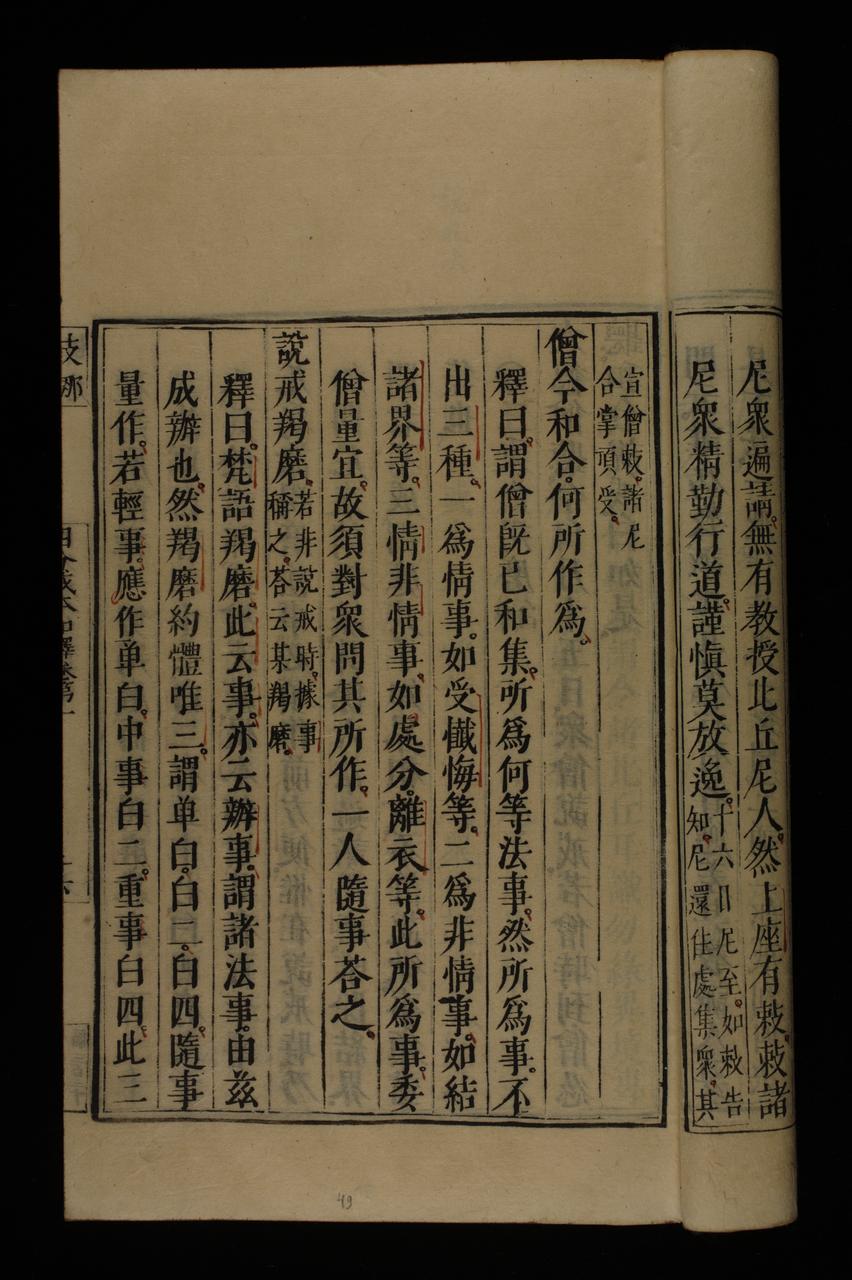 尼衆遍請無有教授比丘尼人然上座有敕敕諸
尼衆精勤行道謹慎莫放逸十六日尼至如敕告
知尼還住處集衆其
宣僧敕諸尼
合掌頂受
僧今和合何所作爲
釋曰謂僧旣已和集所爲何等法事然所爲事不
出三種一爲情事如受懺悔等二爲非情事如結
諸界等三情非情事如處分離衣等此所爲事委
僧量宜故須對衆問其所作一人隨事荅之
說戒羯磨若非說戒時據事
稱之荅云某羯磨
釋曰梵語羯磨此云事亦云辦事謂諸法事由茲
成辦也然羯磨約體唯三謂单白白二白四隨事
量作若輕事應作单白中事白二重事白四此三
支那
49